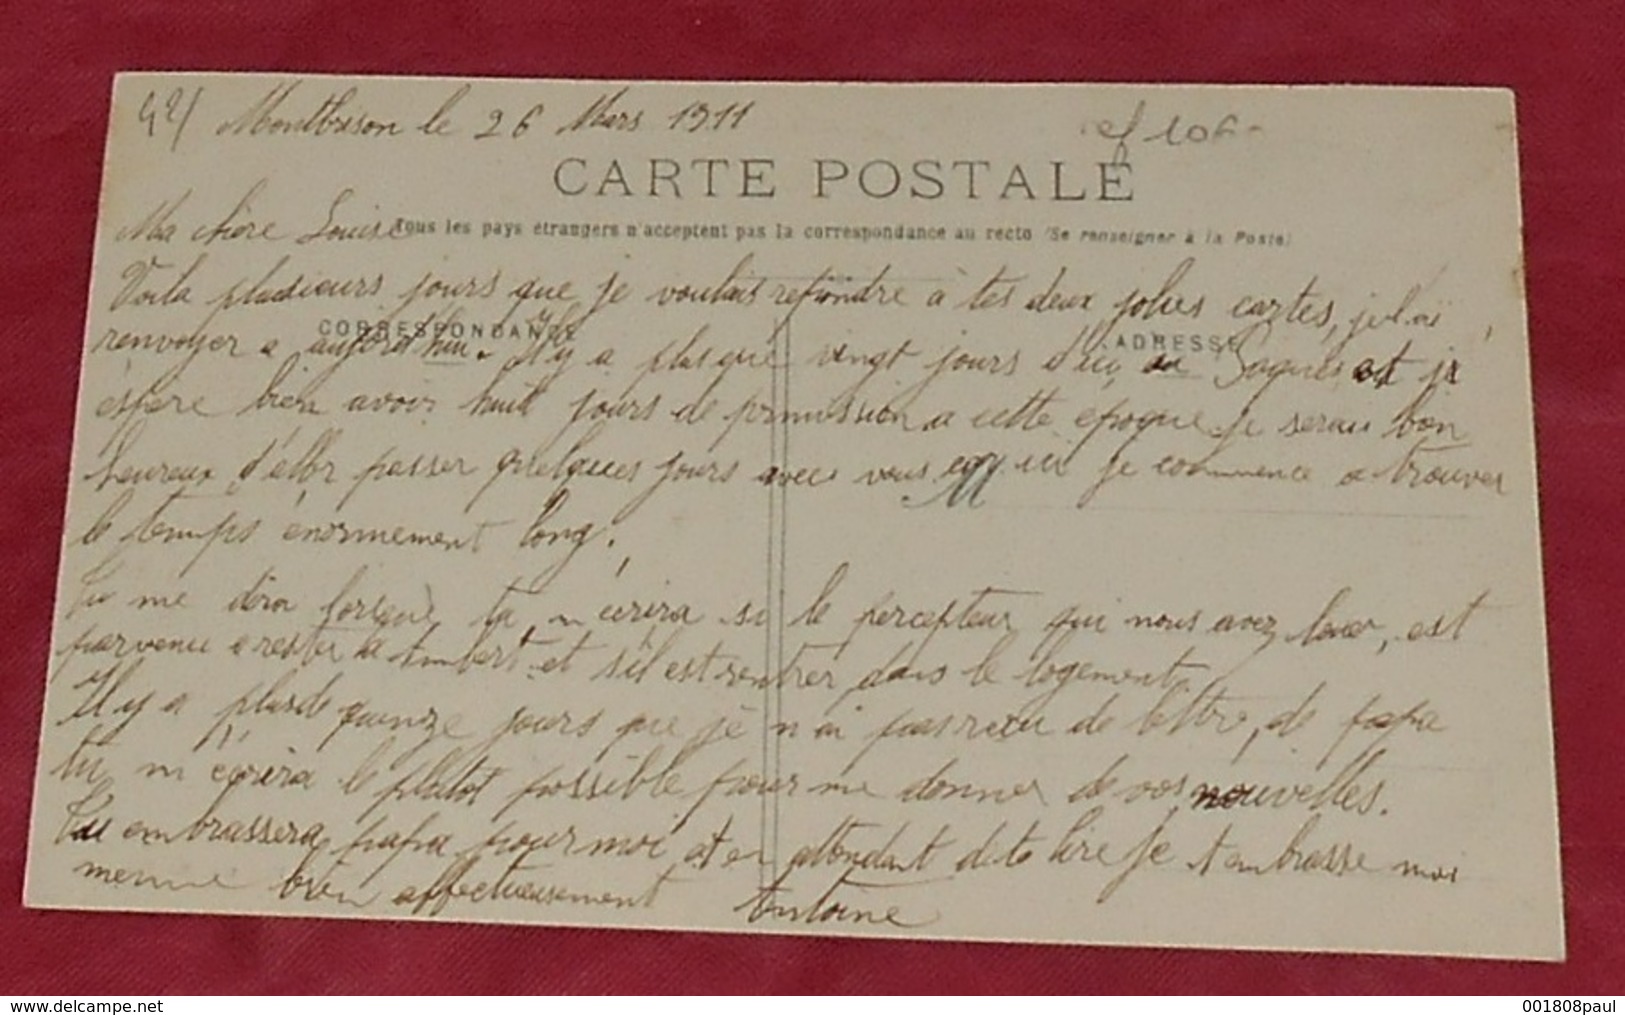 42/ Montbrison le 26 Mars 1911
ref 106-
CARTE POSTALE
Tous les pays étrangers n'acceptent pas la correspondance au recto (Se renseigner à la Poste)
Ma chère Louise
Voila plusieurs jours que je voulais repondre a tes deux jolies cartes, je l'ai
CORRESPONDANCE
ADRESSE
renvoyer a aujord'hui. Il y a plus que vingt jours d'ici au Paques et je
éspère bien avoir huit jours de permission a cette époque. Je serai bien
heureux d'aller passer quelques jours avec vous ici je commence a trouver
le temps énormement long.
Tu me dira lorsque tu m'écrira si le percepteur qui nous avez louer, est
parvenu a rester a Ambert et s'il est rentrer dans le logement
Il y a plus de quinze jours que je n'ai pas recu de lettre, de papa
tu m'écrira le plutot possible pour me donner de vos nouvelles.
Tu embrassera papa pour moi et en attendant de te lire je t'embrasse moi
meme bien affectueusement Antoine
001808paul
www.delcampe.net